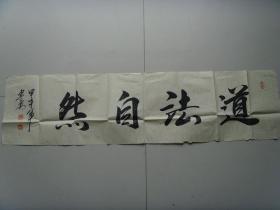 道法自然
甲午年